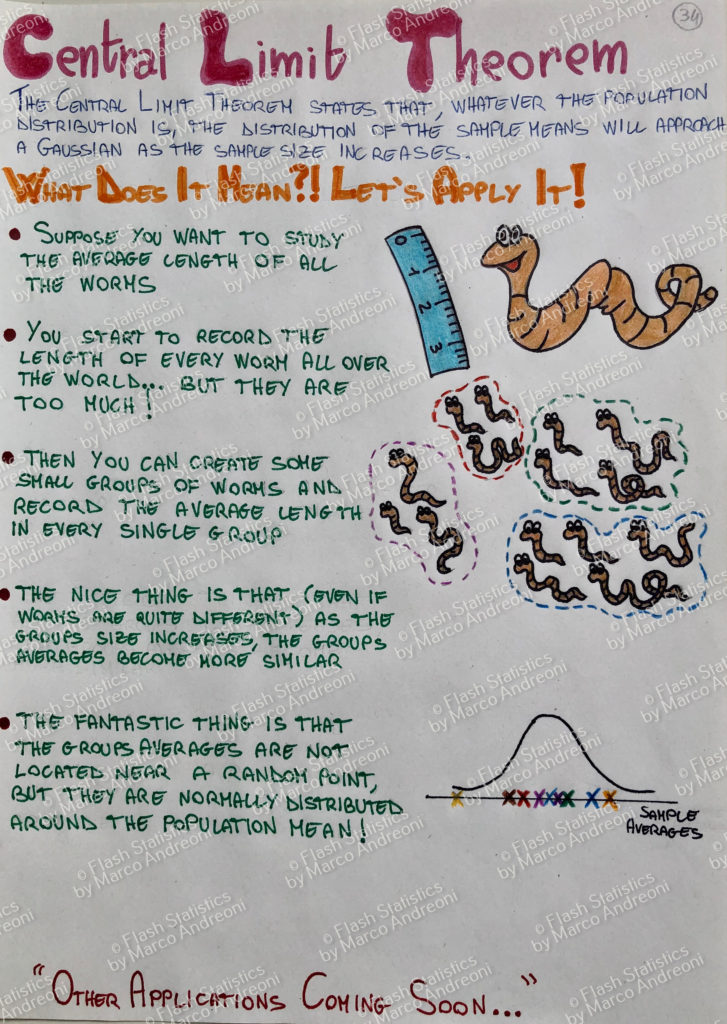 34
Central Limit Theorem
THE CENTRAL LIMIT THEOREM STATES THAT, WHATEVER THE POPULATION
DISTRIBUTION IS, THE DISTRIBUTION OF THE SAMPLE MEANS WILL APPROACH
A GAUSSIAN AS THE SAMPLE SIZE INCREASES.
WHAT DOES IT MEAN?! LET'S APPLY IT!
• SUPPOSE YOU WANT TO STUDY
THE AVERAGE LENGTH OF ALL
THE WORMS
0
1
2
3
• YOU START TO RECORD THE
LENGTH OF EVERY WORM ALL OVER
THE WORLD... BUT THEY ARE
TOO MUCH!
• THEN YOU CAN CREATE SOME
SMALL GROUPS OF WORMS AND
RECORD THE AVERAGE LENGTH
IN EVERY SINGLE GROUP
• THE NICE THING IS THAT (EVEN IF
WORMS ARE QUITE DIFFERENT) AS THE
GROUPS SIZE INCREASES, THE GROUPS
AVERAGES BECOME MORE SIMILAR
• THE FANTASTIC THING IS THAT
THE GROUPS AVERAGES ARE NOT
LOCATED NEAR A RANDOM POINT,
BUT THEY ARE NORMALLY DISTRIBUTED
AROUND THE POPULATION MEAN!
SAMPLE
AVERAGES
"OTHER APPLICATIONS COMING SOON..."
© Flash Statistics
by Marco Andreoni